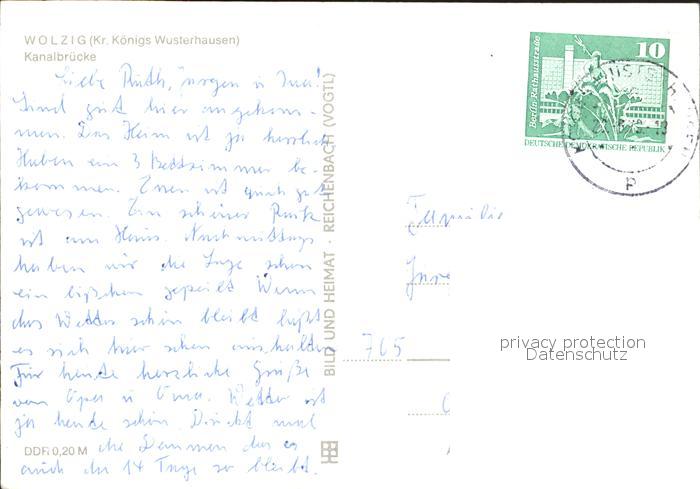 WOLZIG (Kr. Königs Wusterhausen)
Kanalbrücke
Liebe Ruth, Jürgen u.
Sind gut hier angekom-
men. Das Heim ist ja herrlich
Haben ein 3 Bettzimmer be-
kommen. Essen ist auch gut
gewesen. Ein schöner Park
ist am Haus. Nachmittags
haben wir die Lage schon
ein bißchen gepeilt. Wenn
das Wetter schön bleibt läßt
es sich hier schon aushalten
Für heute herzliche Grüße
von Opa u. Oma. Wetter ist
ja heute schön. Drückt mal
die Daumen das es
auch die 14 Tage so bleibt.
DDR 0,20 M
BILD UND HEIMAT · REICHENBACH (VOGTL)
10
Berlin-Rathausstraße
DEUTSCHE DEMOKRATISCHE REPUBLIK
P
Familie
765
privacy protection
Datenschutz